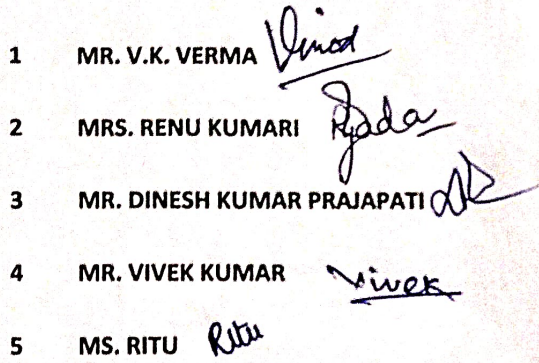 1 MR. V.K. VERMA Vinod
2 MRS. RENU KUMARI
3 MR. DINESH KUMAR PRAJAPATI
4 MR. VIVEK KUMAR Vivek
5 MS. RITU Ritu